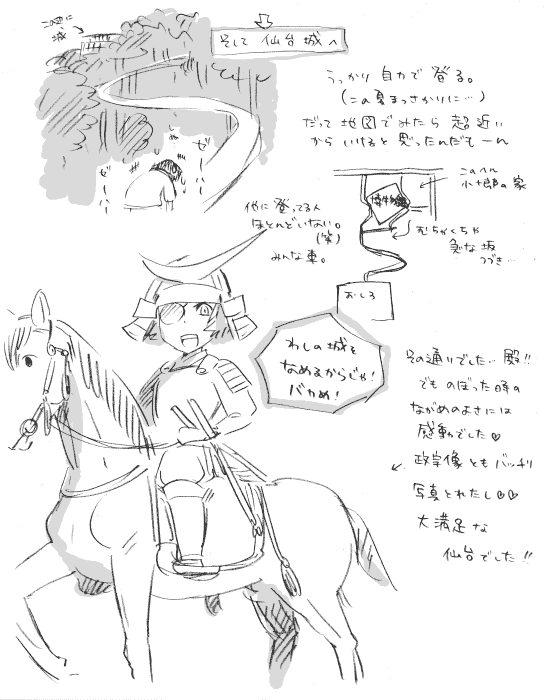 そして 仙台城へ
この上に
城
うっかり 自力で 登る。
(この夏まっさかりに…)
だって 地図でみたら 超近い
から いけると 思ったんだもーん
ゼーハー
ゼーハー
他に 登ってる人
ほとんどいない。
(笑)
みんな車。
このへん
小十郎の家
博物館
むちゃくちゃ
急な坂
つづき…
おしろ
わしの城を
なめるからじゃ!
バカめ!
その通りでした… 殿!!
でも のぼった時の
ながめのよさには
感動でした♡
政宗像ともバッチリ
写真とれたし♡♡
大満足な
仙台でした!!